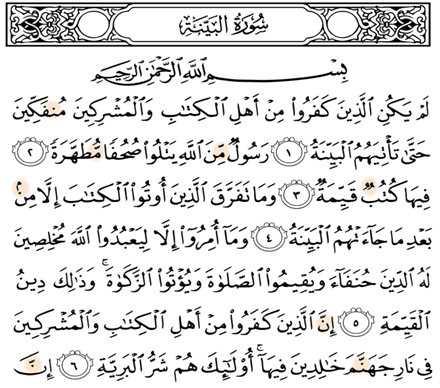 سُورَةُ البَيِّنَةِ
بِسْمِ اللَّهِ الرَّحْمَٰنِ الرَّحِيمِ
لَمْ يَكُنِ الَّذِينَ كَفَرُوا۟ مِنْ أَهْلِ الْكِتَـٰبِ وَالْمُشْرِكِينَ مُنفَكِّينَ
حَتَّىٰ تَأْتِيَهُمُ الْبَيِّنَةُ ١ رَسُولٌ مِّنَ اللَّهِ يَتْلُوا۟ صُحُفًا مُّطَهَّرَةً ٢
فِيهَا كُتُبٌ قَيِّمَةٌ ٣ وَمَا تَفَرَّقَ الَّذِينَ أُوتُوا۟ الْكِتَـٰبَ إِلَّا مِنۢ
بَعْدِ مَا جَآءَتْهُمُ الْبَيِّنَةُ ٤ وَمَآ أُمِرُوٓا۟ إِلَّا لِيَعْبُدُوا۟ اللَّهَ مُخْلِصِينَ
لَهُ الدِّينَ حُنَفَآءَ وَيُقِيمُوا۟ الصَّلَوٰةَ وَيُؤْتُوا۟ الزَّكَوٰةَ ۚ وَذَٰلِكَ دِينُ
الْقَيِّمَةِ ٥ إِنَّ الَّذِينَ كَفَرُوا۟ مِنْ أَهْلِ الْكِتَـٰبِ وَالْمُشْرِكِينَ
فِى نَارِ جَهَنَّمَ خَـٰلِدِينَ فِيهَآ ۚ أُو۟لَـٰٓئِكَ هُمْ شَرُّ الْبَرِيَّةِ ٦ إِنَّ